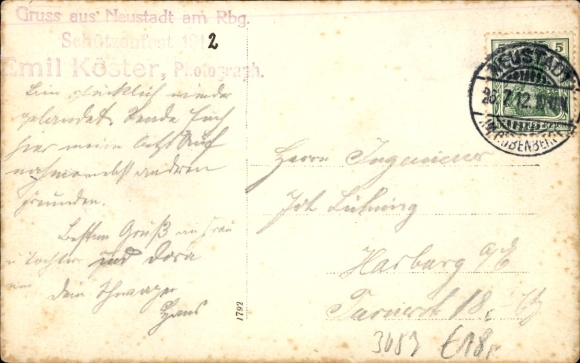 Gruss aus Neustadt am Rbg.
Schützenfest 1912
Emil Köster, Photograph.
Bin glücklich wieder
gelandet. Sende Euch
hier meine
nahme mit anderen
Freunden.
Besten Gruß an Frau
u Tochter und Dora
Dein Schwager
Hans
5 5
NEUSTADT
26.7.12
RÜBENBERGE
Herrn Ingenieur
Joh
Harburg a/E
18
1792
3083 €18,-